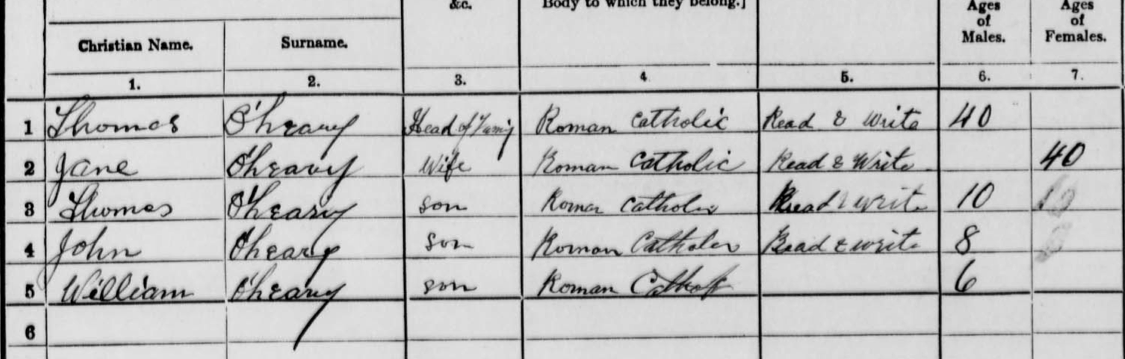 &c. Body to which they belong.] Ages of Males. Ages of Females.
Christian Name. Surname.
1. 2. 3. 4. 5. 6. 7.
1 Thomas O'Heary Head of Family Roman Catholic Read & Write 40
2 Jane O'Heary Wife Roman Catholic Read & Write 40
3 Thomas O'Heary son Roman Catholic Read & Write 10
4 John O'Heary son Roman Catholic Read & write 8
5 William O'Heary son Roman 6
6